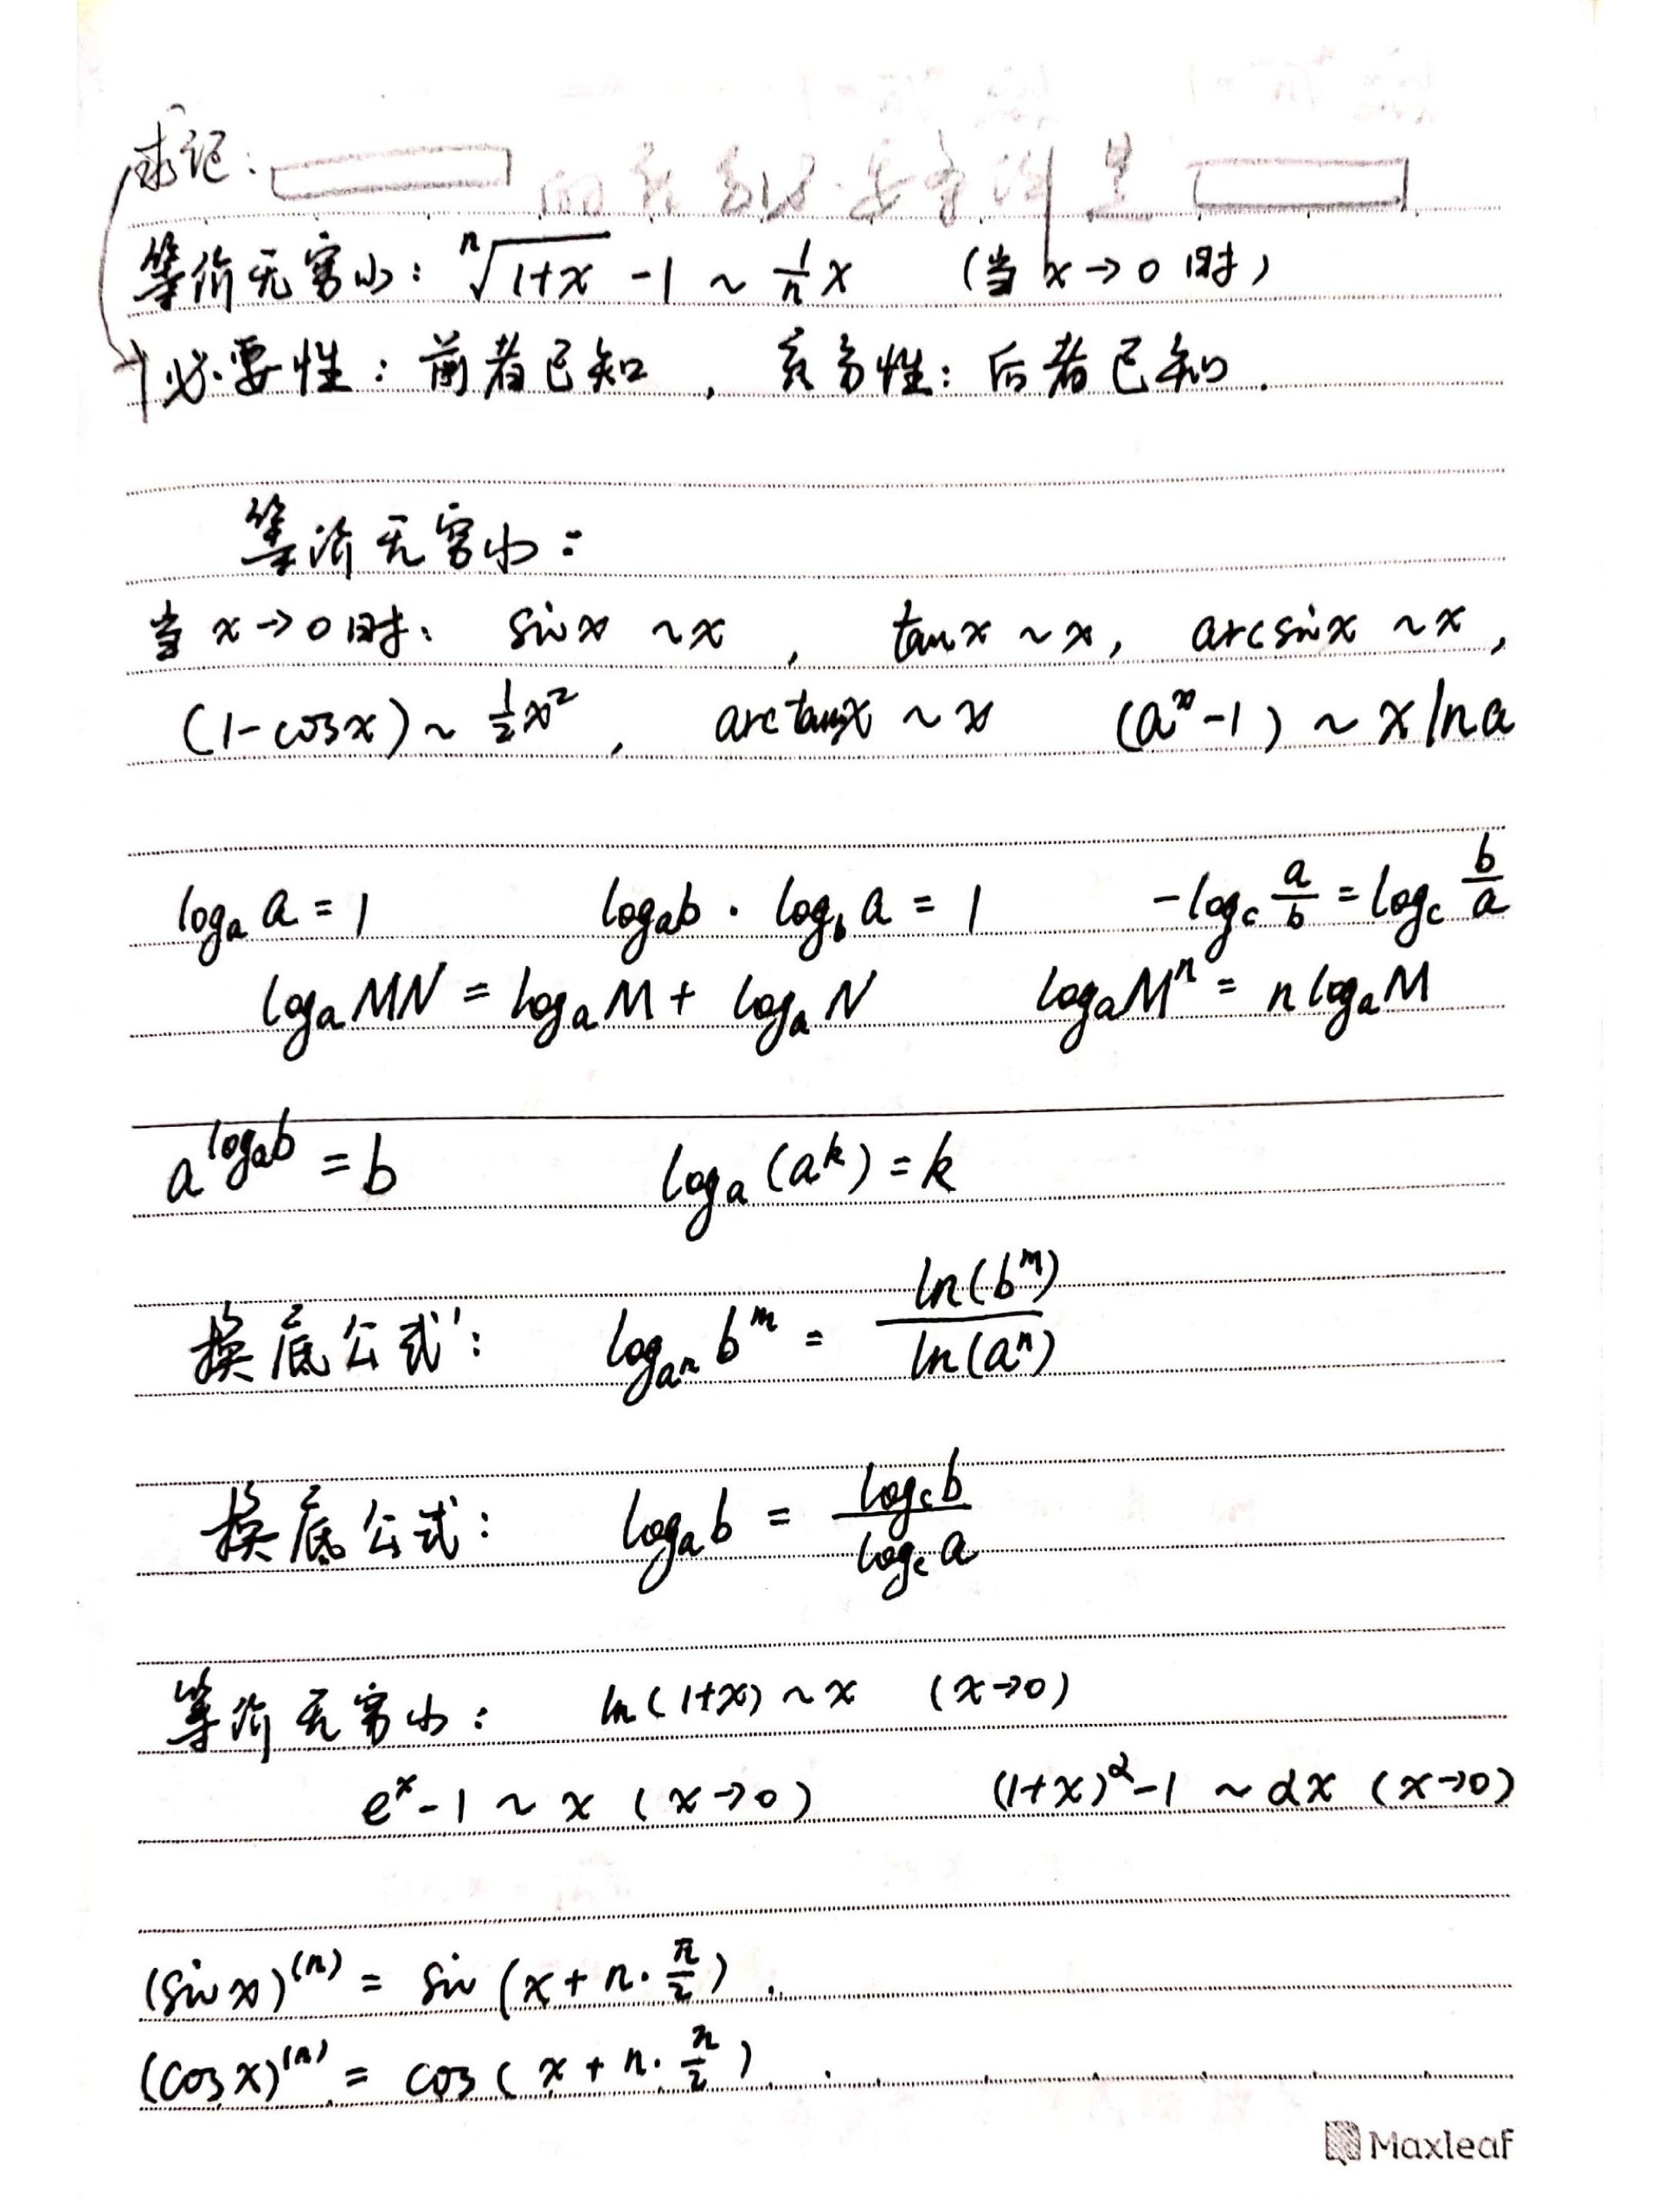 求证: 的充分必要条件是
等价无穷小: ⁿ√(1+x) -1 ~ 1/n x (当 x→0 时)
必要性: 前者已知, 充分性: 后者已知.
等价无穷小:
当 x→0 时: sinx ~x , tanx ~x, arcsinx ~x,
(1-cosx) ~ 1/2 x², arctanx ~ x (aˣ-1) ~ x lna
logₐ a = 1 logₐb · log_b a = 1 -log_c a/b = log_c b/a
logₐ MN = logₐ M + logₐ N logₐMⁿ = n logₐM
a^(logₐb) = b logₐ (aᵏ) = k
换底公式': log_(aⁿ) bᵐ = ln(bᵐ)/ln(aⁿ)
换底公式: logₐb = log_c b/log_c a
等价无穷小: ln(1+x) ~x (x→0)
eˣ-1 ~ x (x→0) (1+x)^α-1 ~ αx (x→0)
(sinx)⁽ⁿ⁾ = sin (x+n·π/2) .
(cosx)⁽ⁿ⁾ = cos (x+n·π/2) .
Maxleaf